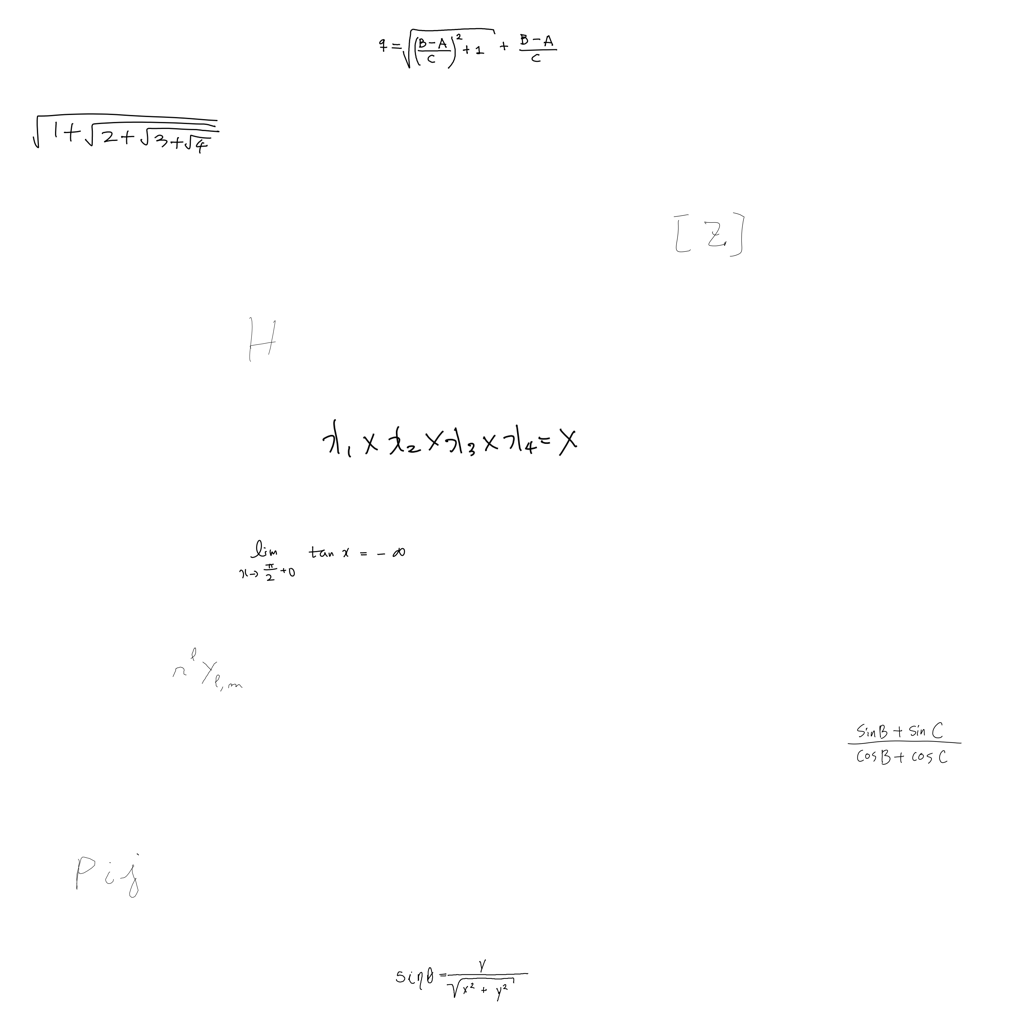 q = \sqrt{\left(\frac{B-A}{C}\right)^2 + 1} + \frac{B-A}{C}
\sqrt{1+\sqrt{2+\sqrt{3+\sqrt{4}}}}
[Z]
H
x_1 \times x_2 \times x_3 \times x_4 = X
\lim_{x \to \frac{\pi}{2}+0} \tan x = -\infty
r^l Y_{l,m}
\frac{\sin B + \sin C}{\cos B + \cos C}
p_{ij}
\sin\theta = \frac{y}{\sqrt{x^2 + y^2}}